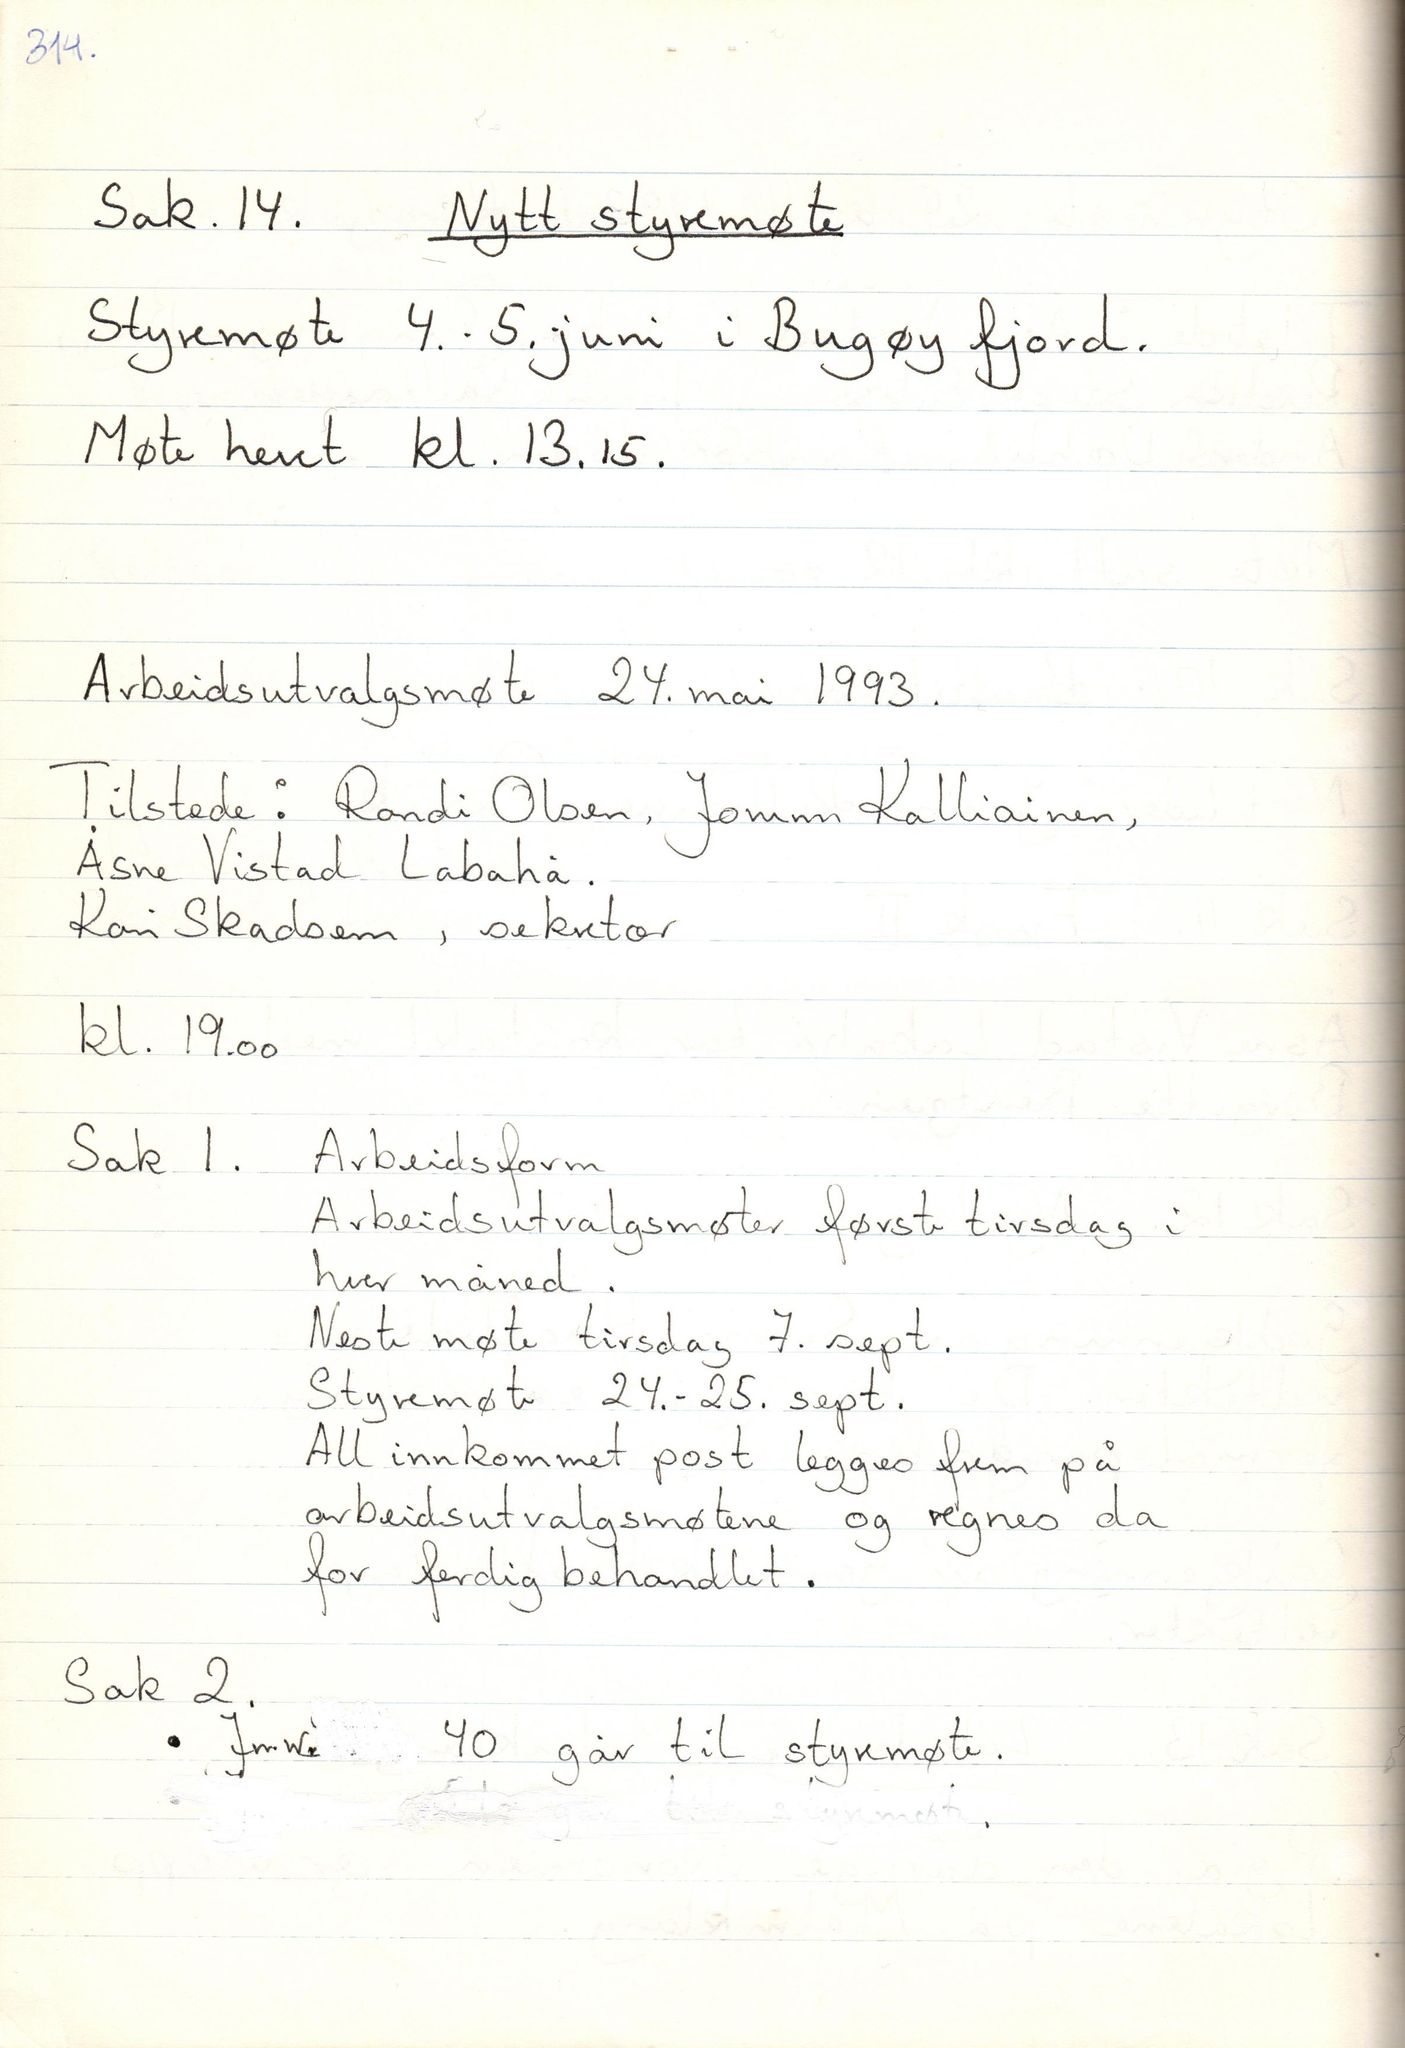 314.
Sak. 14. Nytt styremøte
Styremøte 4.-5. juni i Bugøyfjord.
Møte hevet kl. 13.15.
Arbeidsutvalgsmøte 24. mai 1993.
Tilstede: Randi Olsen, Jomun Kalliainen,
Åsne Vistad Labahå.
Kari Skadsem, sekretær
kl. 19.00
Sak 1. Arbeidsform
Arbeidsutvalgsmøter første tirsdag i
hver måned.
Neste møte tirsdag 7. sept.
Styremøte 24.-25. sept.
All innkommet post legges frem på
arbeidsutvalgsmøtene og regnes da
for ferdig behandlet.
Sak 2.
• 40 går til styremøte.